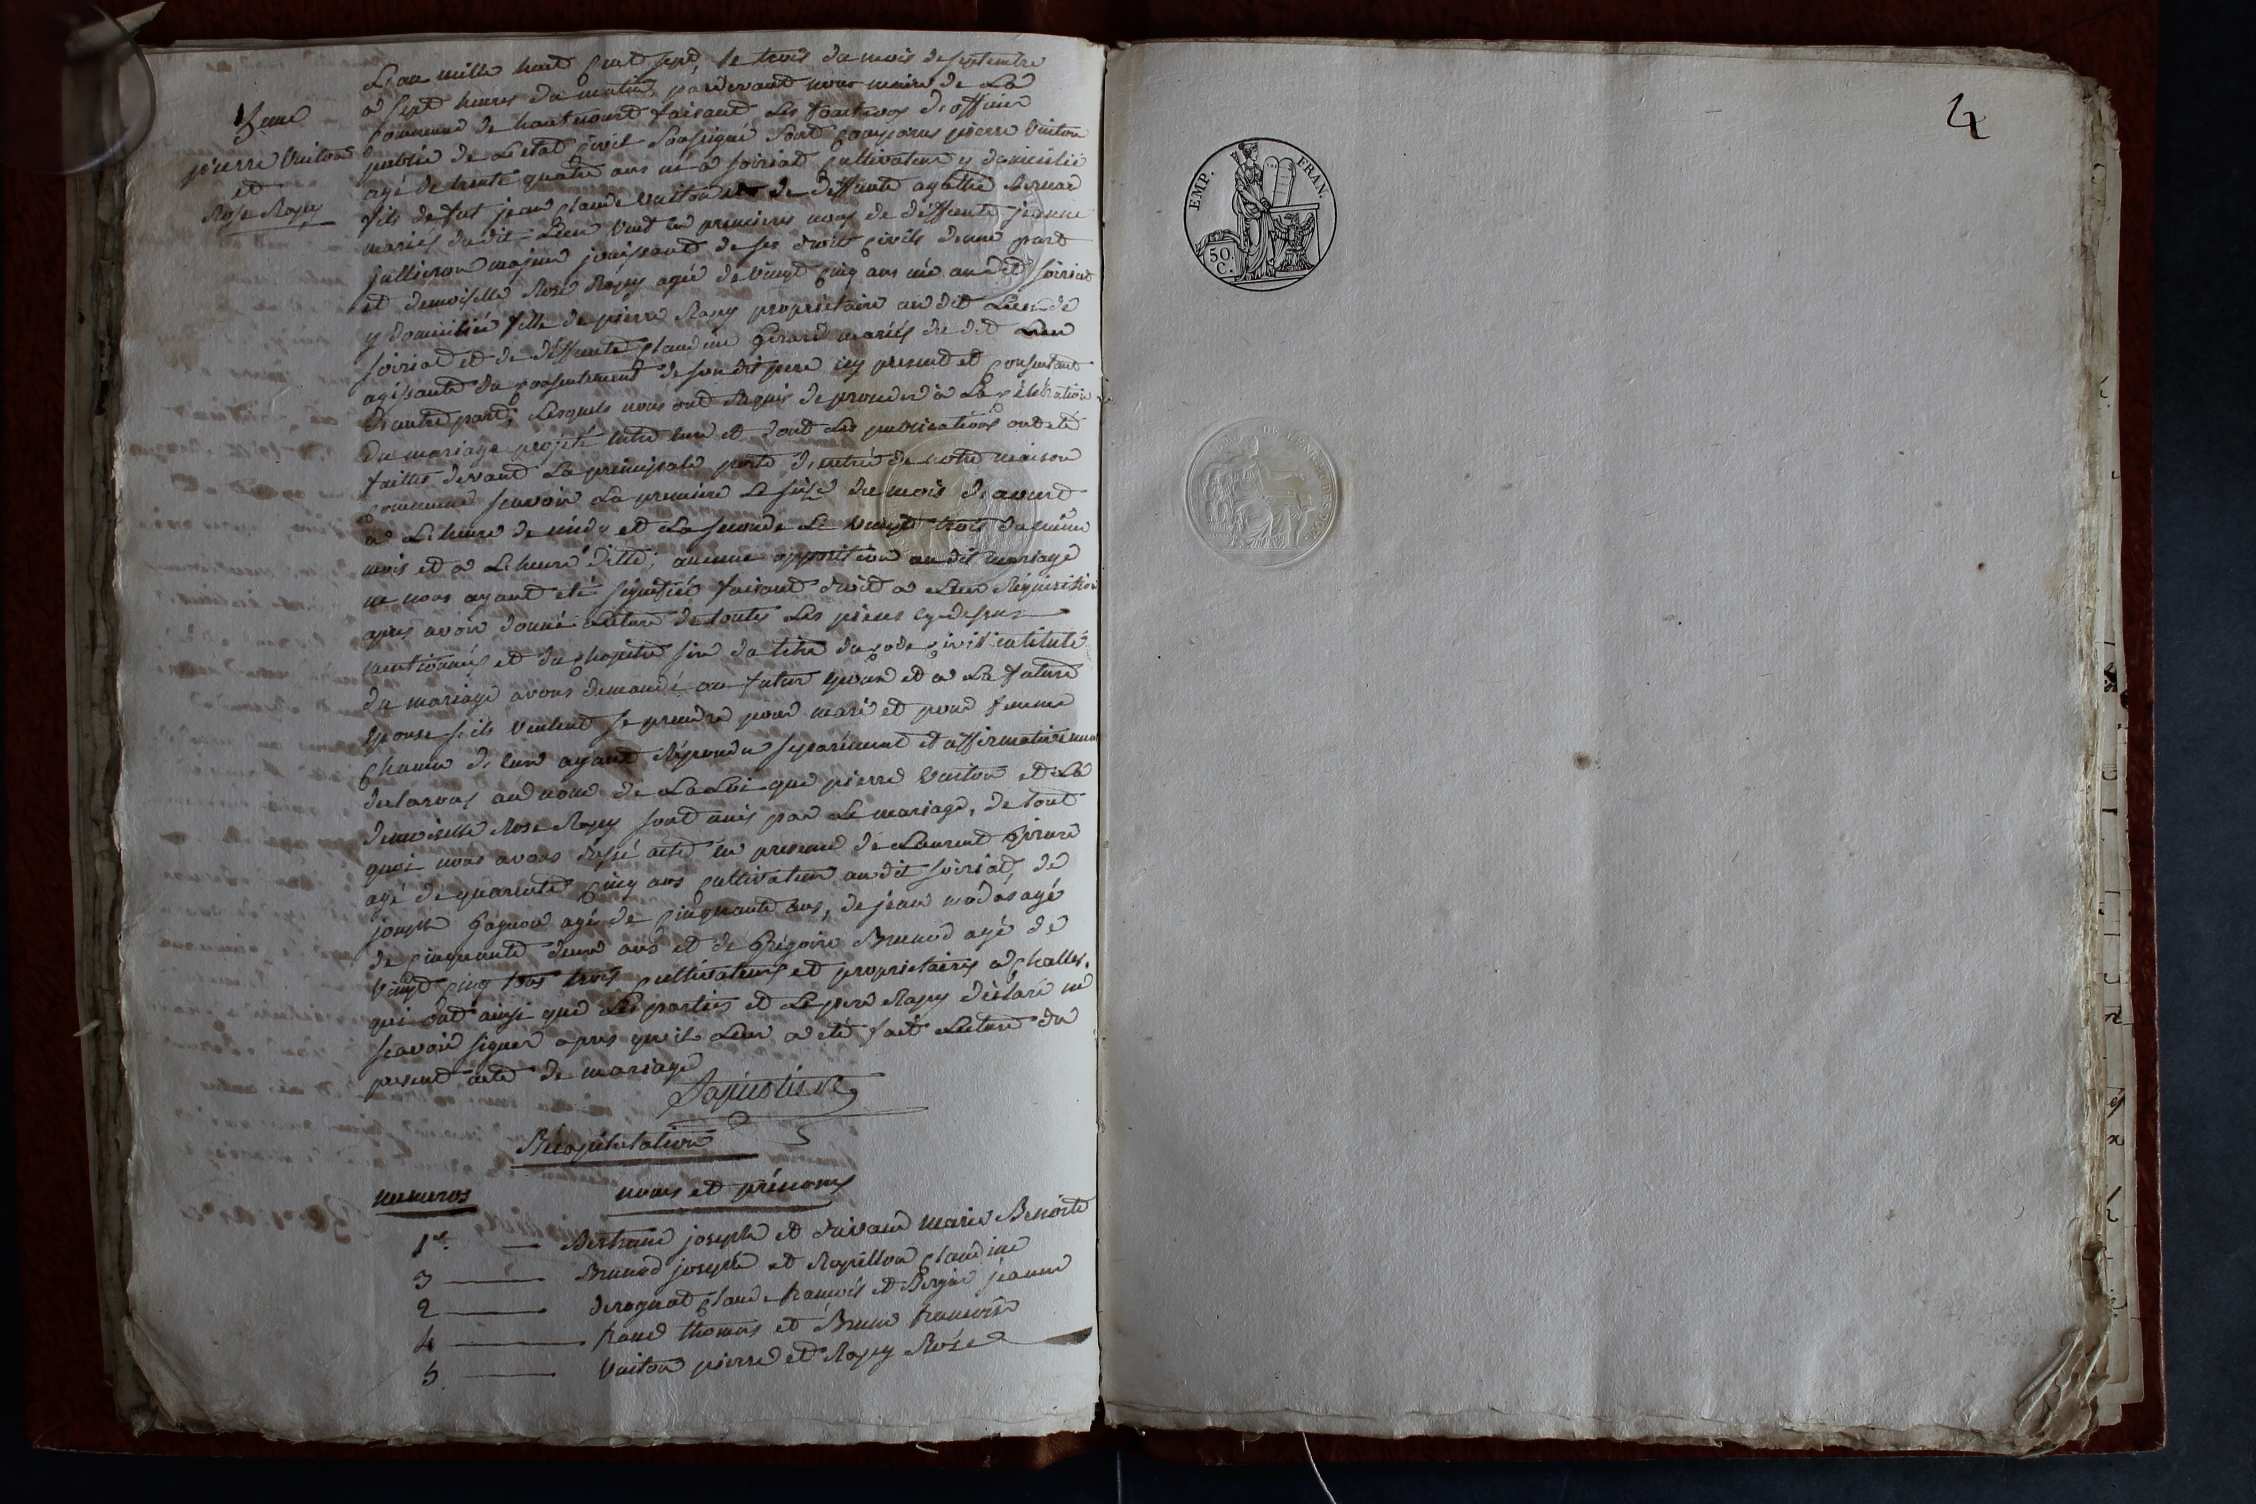 5eme
pierre Vuiton
et
Rose Ropy
L'an mille huit cent sept le trois du mois de septembre
a sept heures du matin, pardevant nous maire de La
commune de hautecourt faisant Les fonctions d'officier
public de L'etat civil soussigné sont comparus pierre Vuiton
agé de trente quatre ans né a soiriat cultivateur y domicilié
fils de fut jean claude Vuiton et de deffunte agathe Bernard
mariés du dit Lieu veuf en premieres noces de deffunte jeanne
jullieron majeur jouissant de ses droits civils d'une part
et demoiselle Rose Ropy agée de vingt cinq ans née au dit soiriat
y domiciliée fille de pierre Ropy proprietaire au dit Lieu de
soiriat et de deffunte claudine Girard mariés du dit Lieu
agissante du consentement de son dit pere icy present et consentant
d'autre part; Lesquels nous ont Requis de proceder a La célébration
du mariage projeté entre eux et dont Les publications ont eté
faittes devant La principale porte d'entrée de notre maison
commune scavoir La premiere Le seize du mois d'aout
a L'heure de midy et La seconde Le vingt trois du même
mois et a L'heure ditte; aucune opposition au dit mariage
ne nous ayant été signifiée faisant droit a Leur Réquisition
apres avoir donné Lecture de toutes Les pieces cy dessus
mentionnées et du chapitre six du titre du code civil intitulé
du mariage avons demandé au futur epoux et a La future
epouse s'ils veulent se prendre pour mari et pour femme
chacun d'eux ayant Répondu séparément et affirmativement
declarons au nom de La Loi que pierre Vuiton et La
demoiselle Rose Ropy sont unis par Le mariage, de tout
quoi nous avons dressé acte en presence de Laurent
agé de quarante cinq ans cultivateur au dit soiriat, de
joseph Gagneux agé de cinquante ans, de jean agé
de cinquante deux ans et de Grégoire Brunod agé de
vingt cinq ans trois cultivateurs et proprietaires a challes.
qui ont ainsi que Les parties et Le pere Ropy déclaré ne
scavoir signer apres qu'il Leur a été fait Lecture du
present acte de mariage
Récapitulation
numeros noms et prénoms
1er. Bertrand joseph et marie Benoite
3 Brunod joseph et Ropillon claudine
2 derognat claude francois et jeanne
4 thomas et Brun francoise
5 Vuiton pierre et Ropy Rose
4
EMP. FRAN.
50.
C.